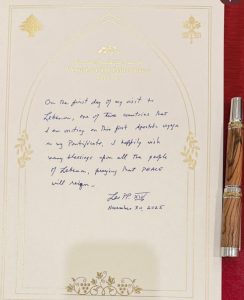 On the first day of my visit to
Lebanon, one of three countries that
I am visiting on this first Apostolic voyage
in my Pontificate, I happily wish
many blessings upon all the people
of Lebanon, praying that PEACE
will reign.
Leo PP. XIV
November 30, 2025